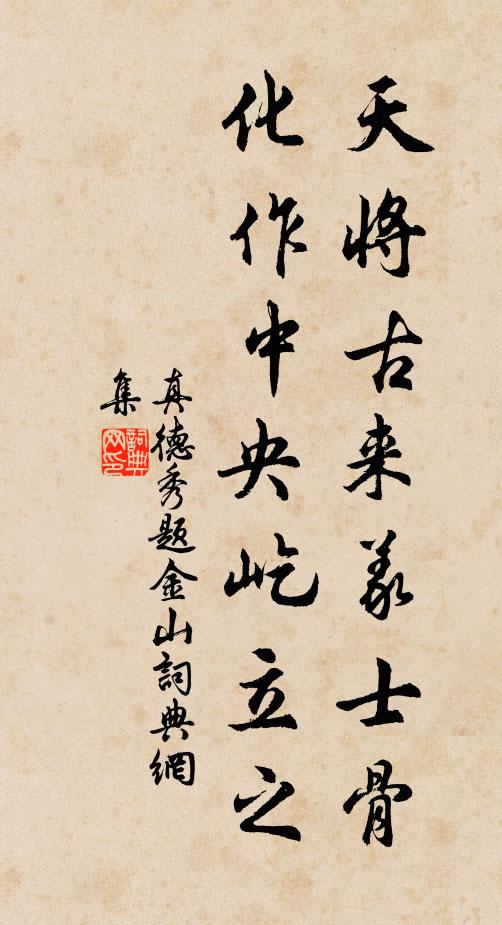 天将古来义士骨
化作中央屹立之
真德秀题金山詞典網
集
詞典
网印